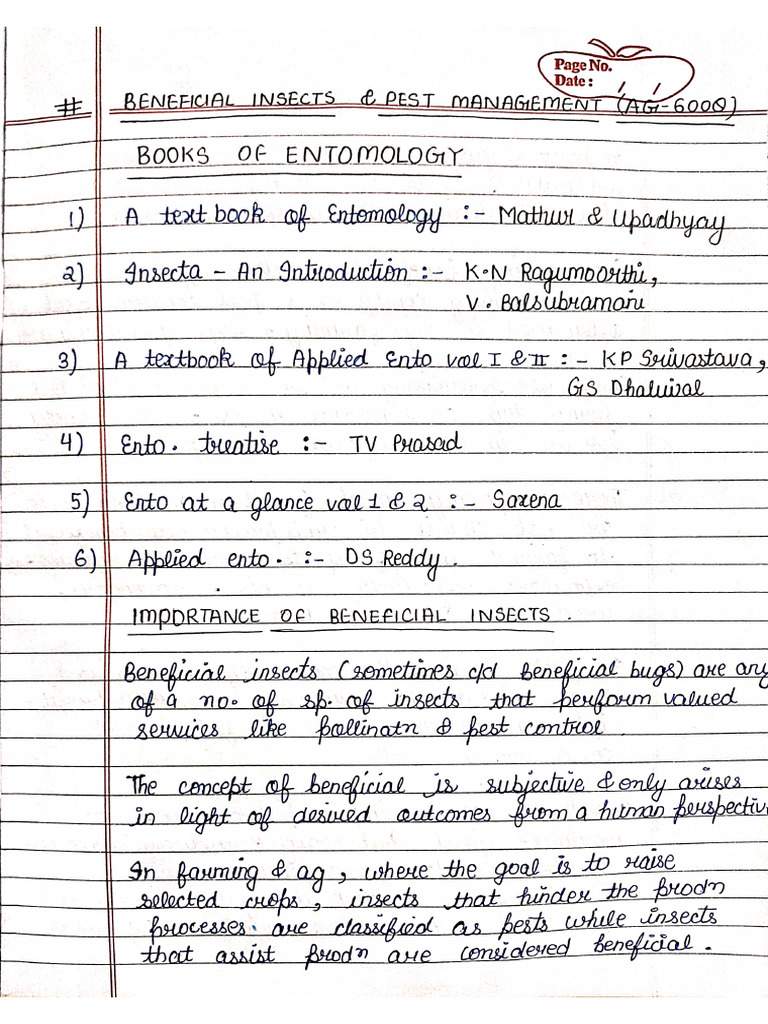 Page No.
Date : / /
# BENEFICIAL INSECTS & PEST MANAGEMENT (AG-600Q)
BOOKS OF ENTOMOLOGY
1) A text book of Entomology :- Mathur & Upadhyay
2) Insecta - An Introduction :- K.N Ragumoorthi,
V. Balsubramani
3) A textbook of Applied Ento vol I & II :- KP Srivastava,
GS Dhaliwal
4) Ento. treatise :- TV Prasad
5) Ento at a glance vol 1 & 2 :- Saxena
6) Applied ento. :- DS Reddy.
IMPORTANCE OF BENEFICIAL INSECTS.
Beneficial insects (sometimes c/d beneficial bugs) are any
of a no. of sp. of insects that perform valued
services like pollinatn & pest control.
The concept of beneficial is subjective & only arises
in light of desired outcomes from a human perspectiv
In farming & ag, where the goal is to raise
selected crops, insects that hinder the prodn
processes. are classified as pests while insects
that assist prodn are considered beneficial.